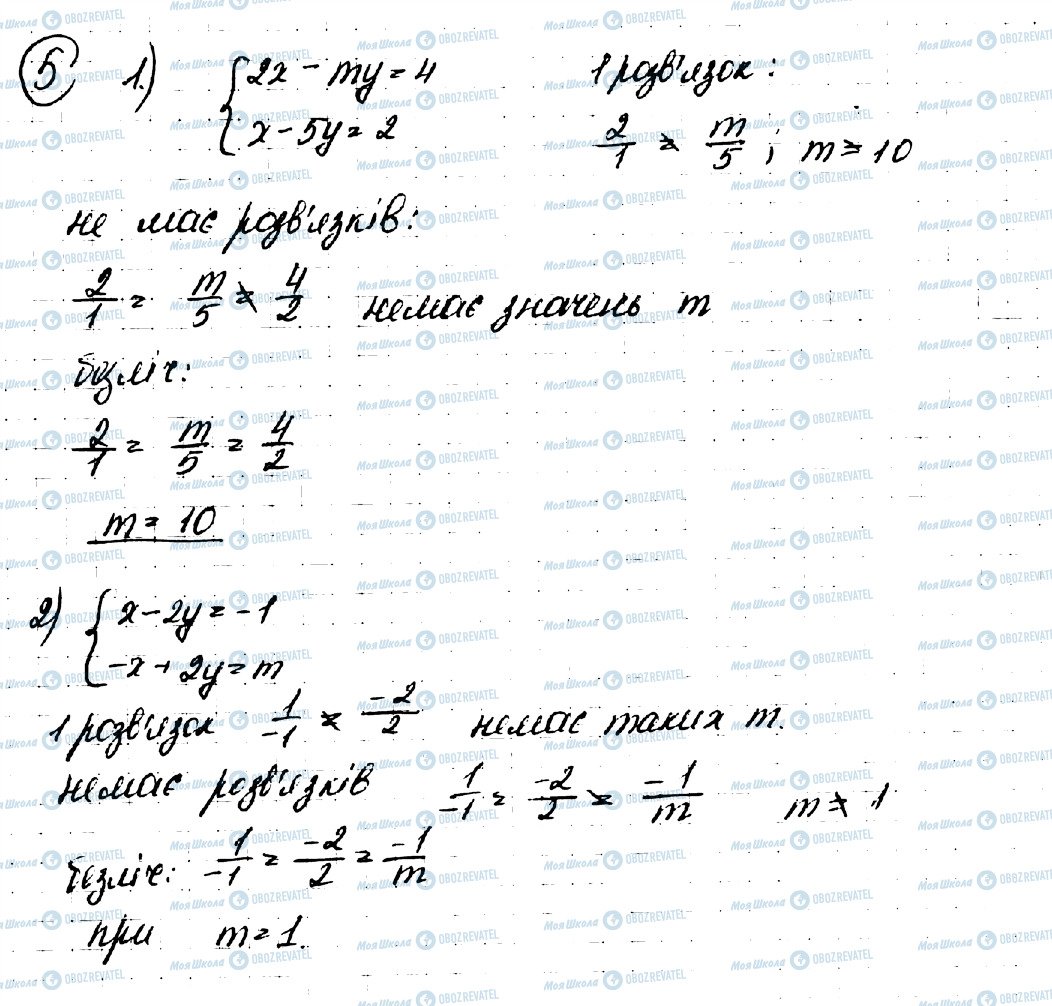 5 1.) { 2x - my = 4
x - 5y = 2
1 розв'язок:
2/1 ≠ m/5 ; m ≠ 10
не має розв'язків:
2/1 = m/5 ≠ 4/2 немає значень m
безліч:
2/1 = m/5 = 4/2
m = 10
2) { x - 2y = -1
-x + 2y = m
1 розв'язок 1/-1 ≠ -2/2 немає таких m.
немає розв'язків 1/-1 = -2/2 ≠ -1/m m ≠ 1
безліч: 1/-1 = -2/2 = -1/m
при m = 1.
МояШкола OBOZREVATEL